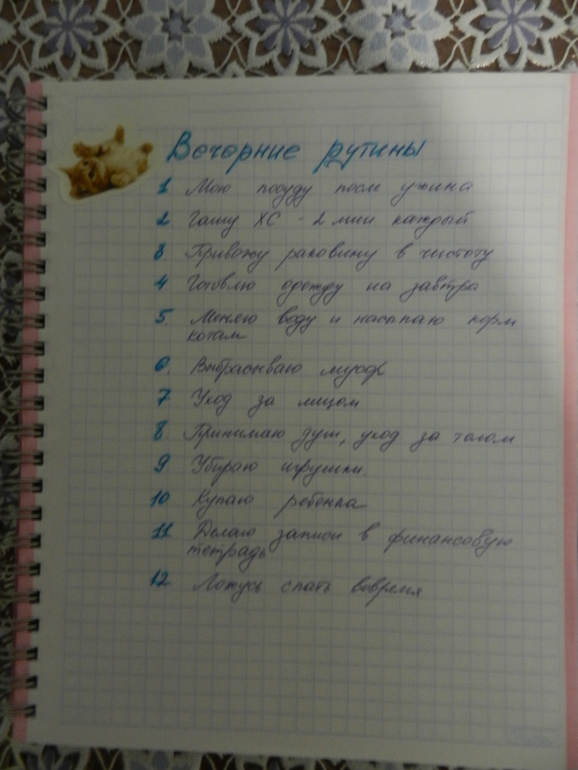 Вечерние рутины
1 Мою посуду после ужина
2 Гашу ХС - 2 мин каждый
3 Привожу раковину в чистоту
4 Готовлю одежду на завтра
5. Меняю воду и насыпаю корм
котам
6. Выбрасываю мусор
7. Уход за лицом
8. Принимаю душ, уход за телом
9 Убираю игрушки
10 Купаю ребенка
11 Делаю записи в финансовую
тетрадь
12 Ложусь спать вовремя